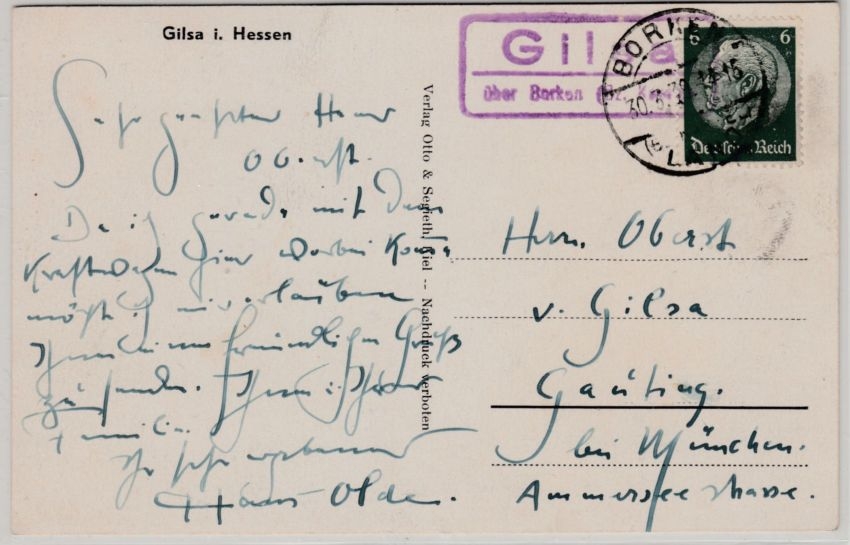 Gilsa i. Hessen
Gilsa
über Borken
BORKEN
30.3.
6 6
Deutsches Reich
Sehr geehrter Herr
Oberst.
Da ich gerade mit dem
Kraftwagen hier vorbei komme
möcht ich mir erlauben
Ihnen einen freundlichen Gruß
zu senden. Ihnen u. Ihrer
Familie
Ihr sehr ergebener
Hans Olde.
Verlag Otto & Segieth, Kiel -- Nachdruck verboten
Herrn. Oberst
v. Gilsa
Gauting.
bei München.
Ammerseestrasse.